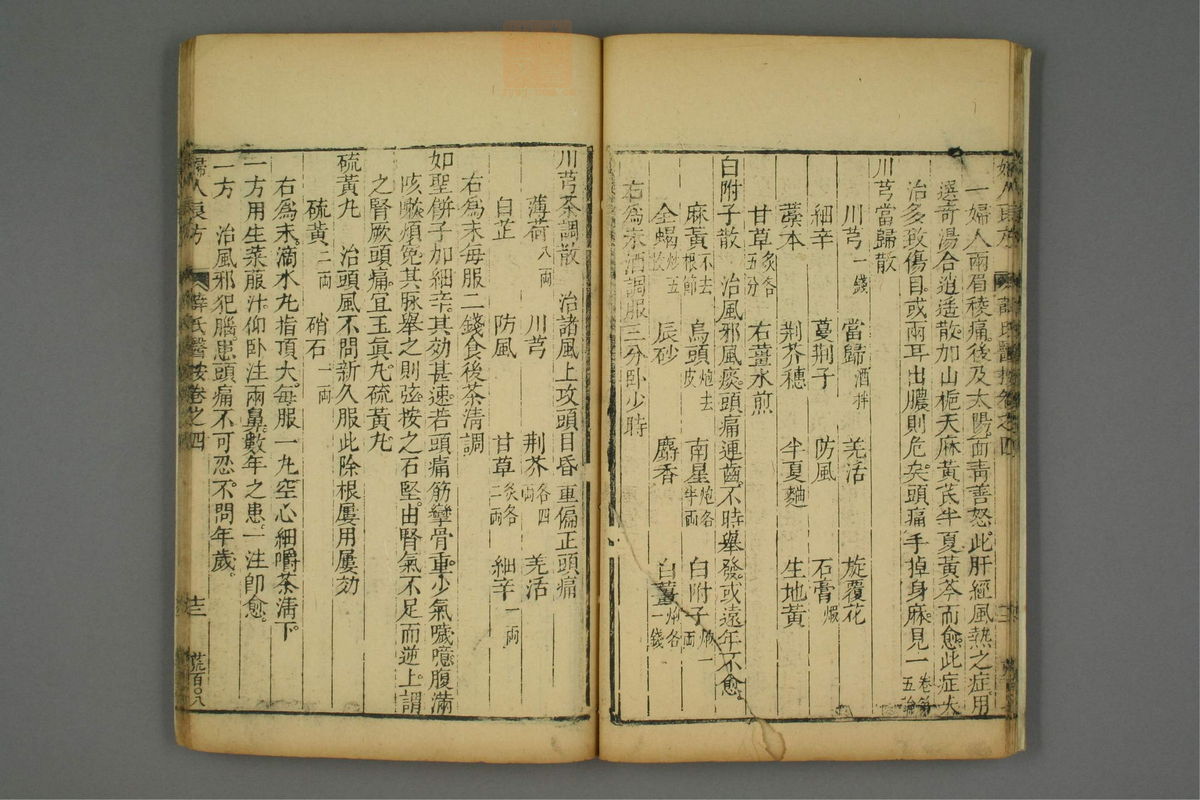 一婦人兩眉稜痛後及太陽面靑善怒此肝經風熱之症用
選竒湯合逍遥散加山梔天麻黃芪半夏黃芩而愈此症太
治多致傷目或兩耳出膿則危矣頭痛手掉身麻見一卷第五論
川芎當歸散
川芎一錢 當歸酒拌 羌活 旋覆花
細辛 蔓荆子 防風 石膏煅
藁本 荆芥穗 半夏麯 生地黃
甘草炙各五分 右薑水煎
白附子散 治風邪風痰頭痛連齒不時舉發或遠年不愈
麻黃不去根節 烏頭炮去皮 南星炮各半両 白附子一両
全蝎炒五 辰砂 麝香 白薑炮各一錢
右爲末酒調服三分卧少時
川芎茶調散 治諸風上攻頭目昏重偏正頭痛
薄荷八両 川芎 荆芥各四両 羌活
白芷 防風 甘草炙各二両 細辛一両
右爲末每服二錢食後茶清調
如聖餅子加細辛其効甚速若頭痛筋攣骨重少氣噦噫腹滿
咳嗽煩寃其脉舉之則弦按之石堅由腎氣不足而逆上謂
之腎厥頭痛宜玉眞九硫黃九
硫黃九 治頭風不問新久服此除根屢用屢効
硫黃二両 硝石一両
右爲末滴水九指頂大每服一九空心細嚼茶清下
一方用生萊菔汁仰卧注兩鼻數年之患一注卽愈
一方 治風邪犯腦患頭痛不可忍不問年歲
婦人良方 薛氏醫按卷之四 十三 荒百〇八